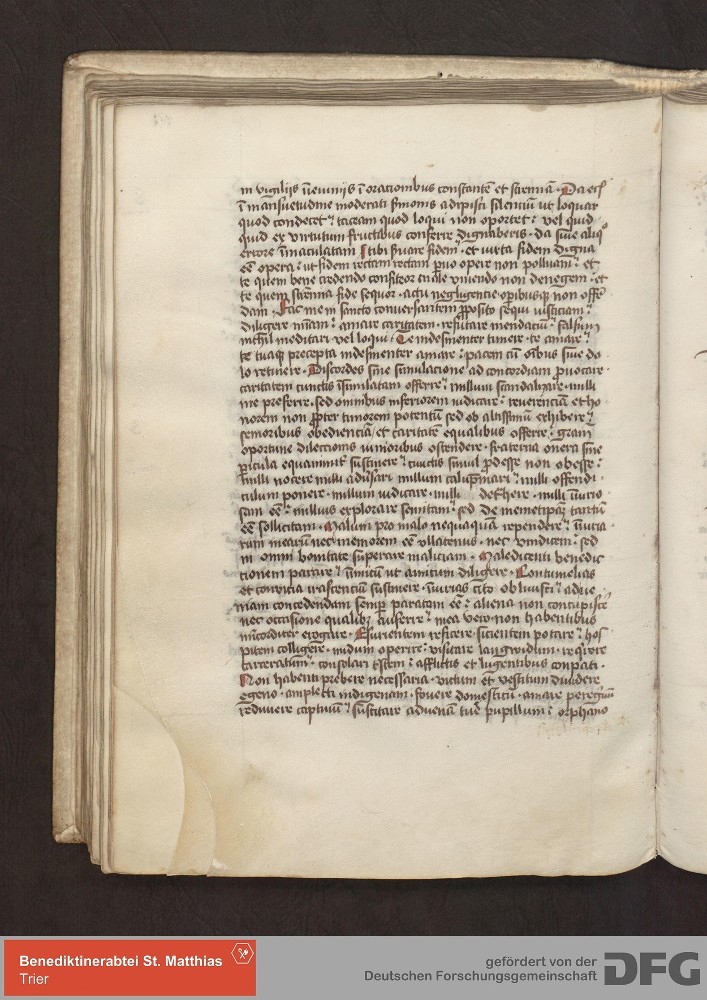 in vigilijs ieiunijs ī orationibus constantē et strennā. Da eciā
ī mansuetudine moderati s̄monis adipisci silenciū ut loquar
quod condecet taceam quod loqui non oportet vel quid
quid ex virtutum fructibus conferre dignaberis. da sine aliq°
errore īmaculatam tibi s̄uare fidem et iuxta fidem digna
eē opera ut fidem rectam rectam puo opere non polluam et
te quem bene credendo confiteor male viuendo non denegem. et
te quem strenna fide sequor. actu negligencie operibusq; non offē
dam. Fac me in sancto conuersantem p̄posito sequi iusticiam
diligere miāam amare caritatem. refutare mendaciū falsum
nichil meditari vel loqui. Te indesinenter timere. te amare
te tuaq; precepta indesinenter amare pacem cū oībus sine do
lo retinere. Discordes sine simulacione ad concordiam p̄uocare
caritatem cunctis īsimilatam offerre nullum scandalizare. nulli
me preferre. sed omnibus inferiorem iudicare. reuerenciā et ho
norem non p̄pter timorem potentū sed ob altissimū exhibere
senioribus obedienciā / et caritatē equalibus offerre. grām
oportune dilectionis iunioribus ostendere. fraterna onera sine
p̄icula equanimit̄ sustinere cunctis simul p̄desse non obesse
nulli nocere nulli adūsari nullum calūpniari nulli offendi
culum ponere. nullum iudicare. nulli detrhere. nulli iniurio
sam eē nullius explorare semitam sed de memetip̄a tantū
eē sollicitam. Malum pro malo nequaquā rependere iniuria
rum mearū nec memorem eē vllatenus. nec vindicem sed
in omni bonitate superare maliciam. Maledicenti benedic
tionem parare inimicū ut amicum diligere. Contumelias
et conuicia irascentiū sustinere. iniurias cito obliuisci ad ve
niam concedendam semp̄ paratam eē aliena non concupiscē
nec occasione qualib; auferre mea vero non habentibus
incōditer erogare. Esurientem reficere. sicientem potare hos
pitem colligere. nudum operire visitare langwidum. req̄rere
carceratum. consolari t̄stem afflictis et lugentibus conpati.
Non habenti prebere necessaria. victum et vestitum diuidere
egeno. amplecti indigenam. fouere domesticū. amare peregrinū
redimere captiuū suscitare aduenā tueri pupillum orphano
Benediktinerabtei St. Matthias
Trier
gefördert von der
Deutschen Forschungsgemeinschaft
DFG